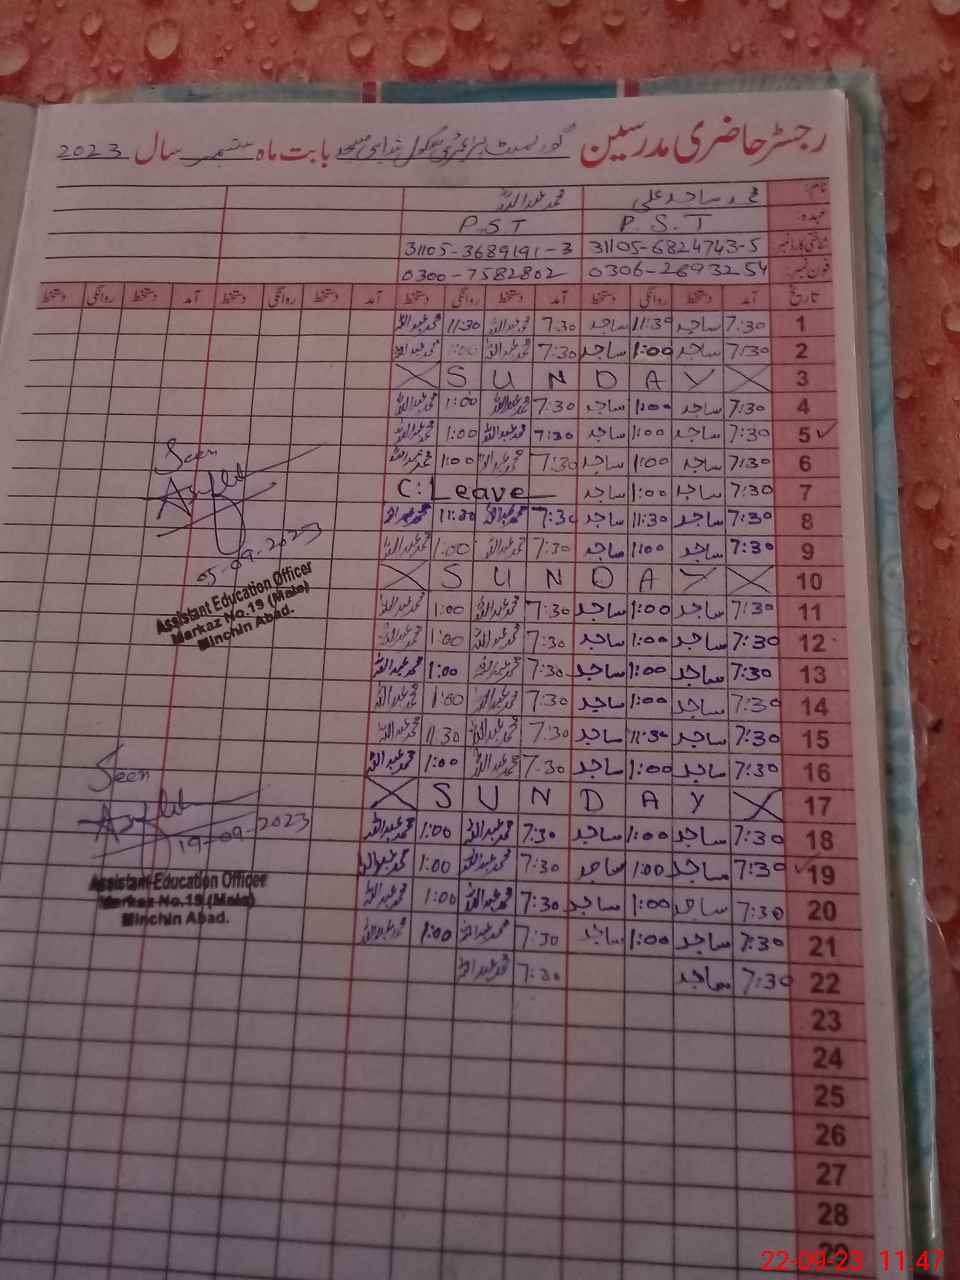 رجسٹر حاضری مدرسین گورنمنٹ پرائمری سکول بابت ماہ ستمبر سال 2023
نام: محمد ساجد علی محمد عبداللہ
عہدہ: P.S.T P.S.T
شناختی کارڈ نمبر 31105-6824743-5 31105-3689191-3
فون نمبر: 0306-2693254 0300-7582802
تاریخ آمد دستخط روانگی دستخط آمد دستخط روانگی دستخط آمد دستخط روانگی دستخط آمد دستخط روانگی دستخط
1 7:30 ساجد 11:30 ساجد 7:30 محمد عبداللہ 11:30 محمد عبداللہ
2 7:30 ساجد 1:00 ساجد 7:30 محمد عبداللہ 1:00 محمد عبداللہ
3 X S U N D A Y X
4 7:30 ساجد 1:00 ساجد 7:30 محمد عبداللہ 1:00 محمد عبداللہ
5 ✓ 7:30 ساجد 1:00 ساجد 7:30 محمد عبداللہ 1:00 محمد عبداللہ
6 7:30 ساجد 1:00 ساجد 7:30 محمد عبداللہ 1:00 محمد عبداللہ
7 7:30 ساجد 1:00 ساجد C: Leave
8 7:30 ساجد 11:30 ساجد 7:30 محمد عبداللہ 11:30 محمد عبداللہ
9 7:30 ساجد 1:00 ساجد 7:30 محمد عبداللہ 1:00 محمد عبداللہ
10 X S U N D A Y X
11 7:30 ساجد 1:00 ساجد 7:30 محمد عبداللہ 1:00 محمد عبداللہ
12 7:30 ساجد 1:00 ساجد 7:30 محمد عبداللہ 1:00 محمد عبداللہ
13 7:30 ساجد 1:00 ساجد 7:30 محمد عبداللہ 1:00 محمد عبداللہ
14 7:30 ساجد 1:00 ساجد 7:30 محمد عبداللہ 1:00 محمد عبداللہ
15 7:30 ساجد 11:30 ساجد 7:30 محمد عبداللہ 11:30 محمد عبداللہ
16 7:30 ساجد 1:00 ساجد 7:30 محمد عبداللہ 1:00 محمد عبداللہ
17 X S U N D A Y X
18 7:30 ساجد 1:00 ساجد 7:30 محمد عبداللہ 1:00 محمد عبداللہ
19 ✓ 7:30 ساجد 1:00 ساجد 7:30 محمد عبداللہ 1:00 محمد عبداللہ
20 7:30 ساجد 1:00 ساجد 7:30 محمد عبداللہ 1:00 محمد عبداللہ
21 7:30 ساجد 1:00 ساجد 7:30 محمد عبداللہ 1:00 محمد عبداللہ
22 7:30 ساجد 7:30 محمد عبداللہ
23
24
25
26
27
28
29
Seen
05-09-2023
Assistant Education Officer
Markaz No.19 (Male)
Minchin Abad.
Seen
19-09-2023
Assistant Education Officer
Markaz No.19 (Male)
Minchin Abad.
22-09-23 11:47